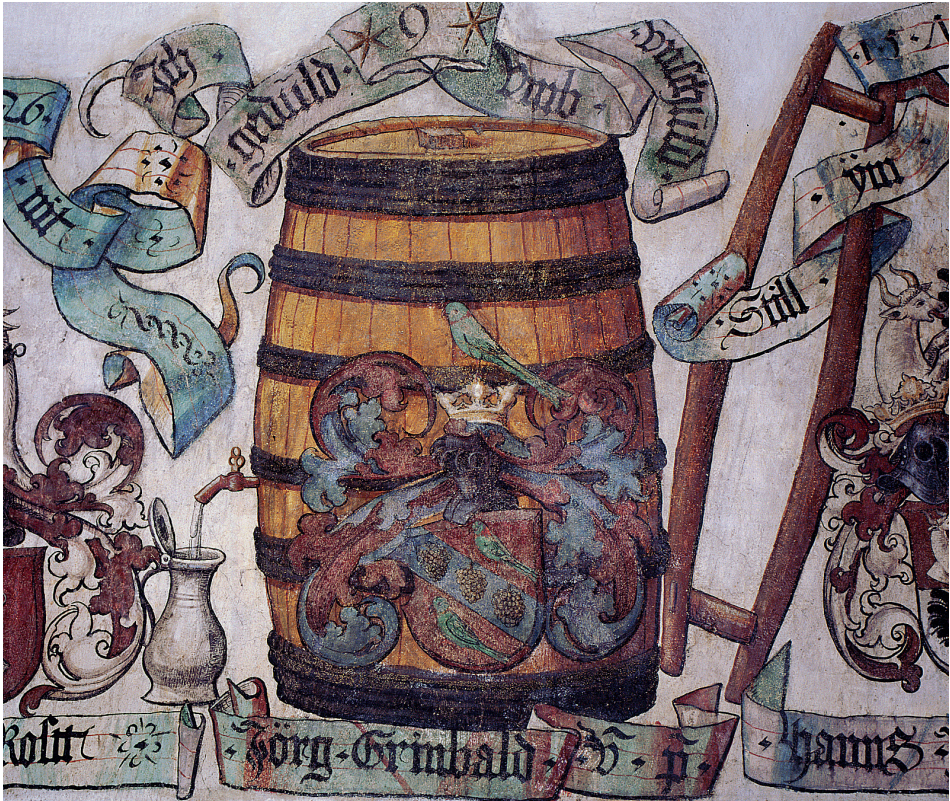 Ich · geduld · 9 vmb · vnschuld
26 ·
mit
· 15 ·
ÿm
· Still ·
Rositt
· Jörg · Grinbald · V̄ · p̄ ·
hanns